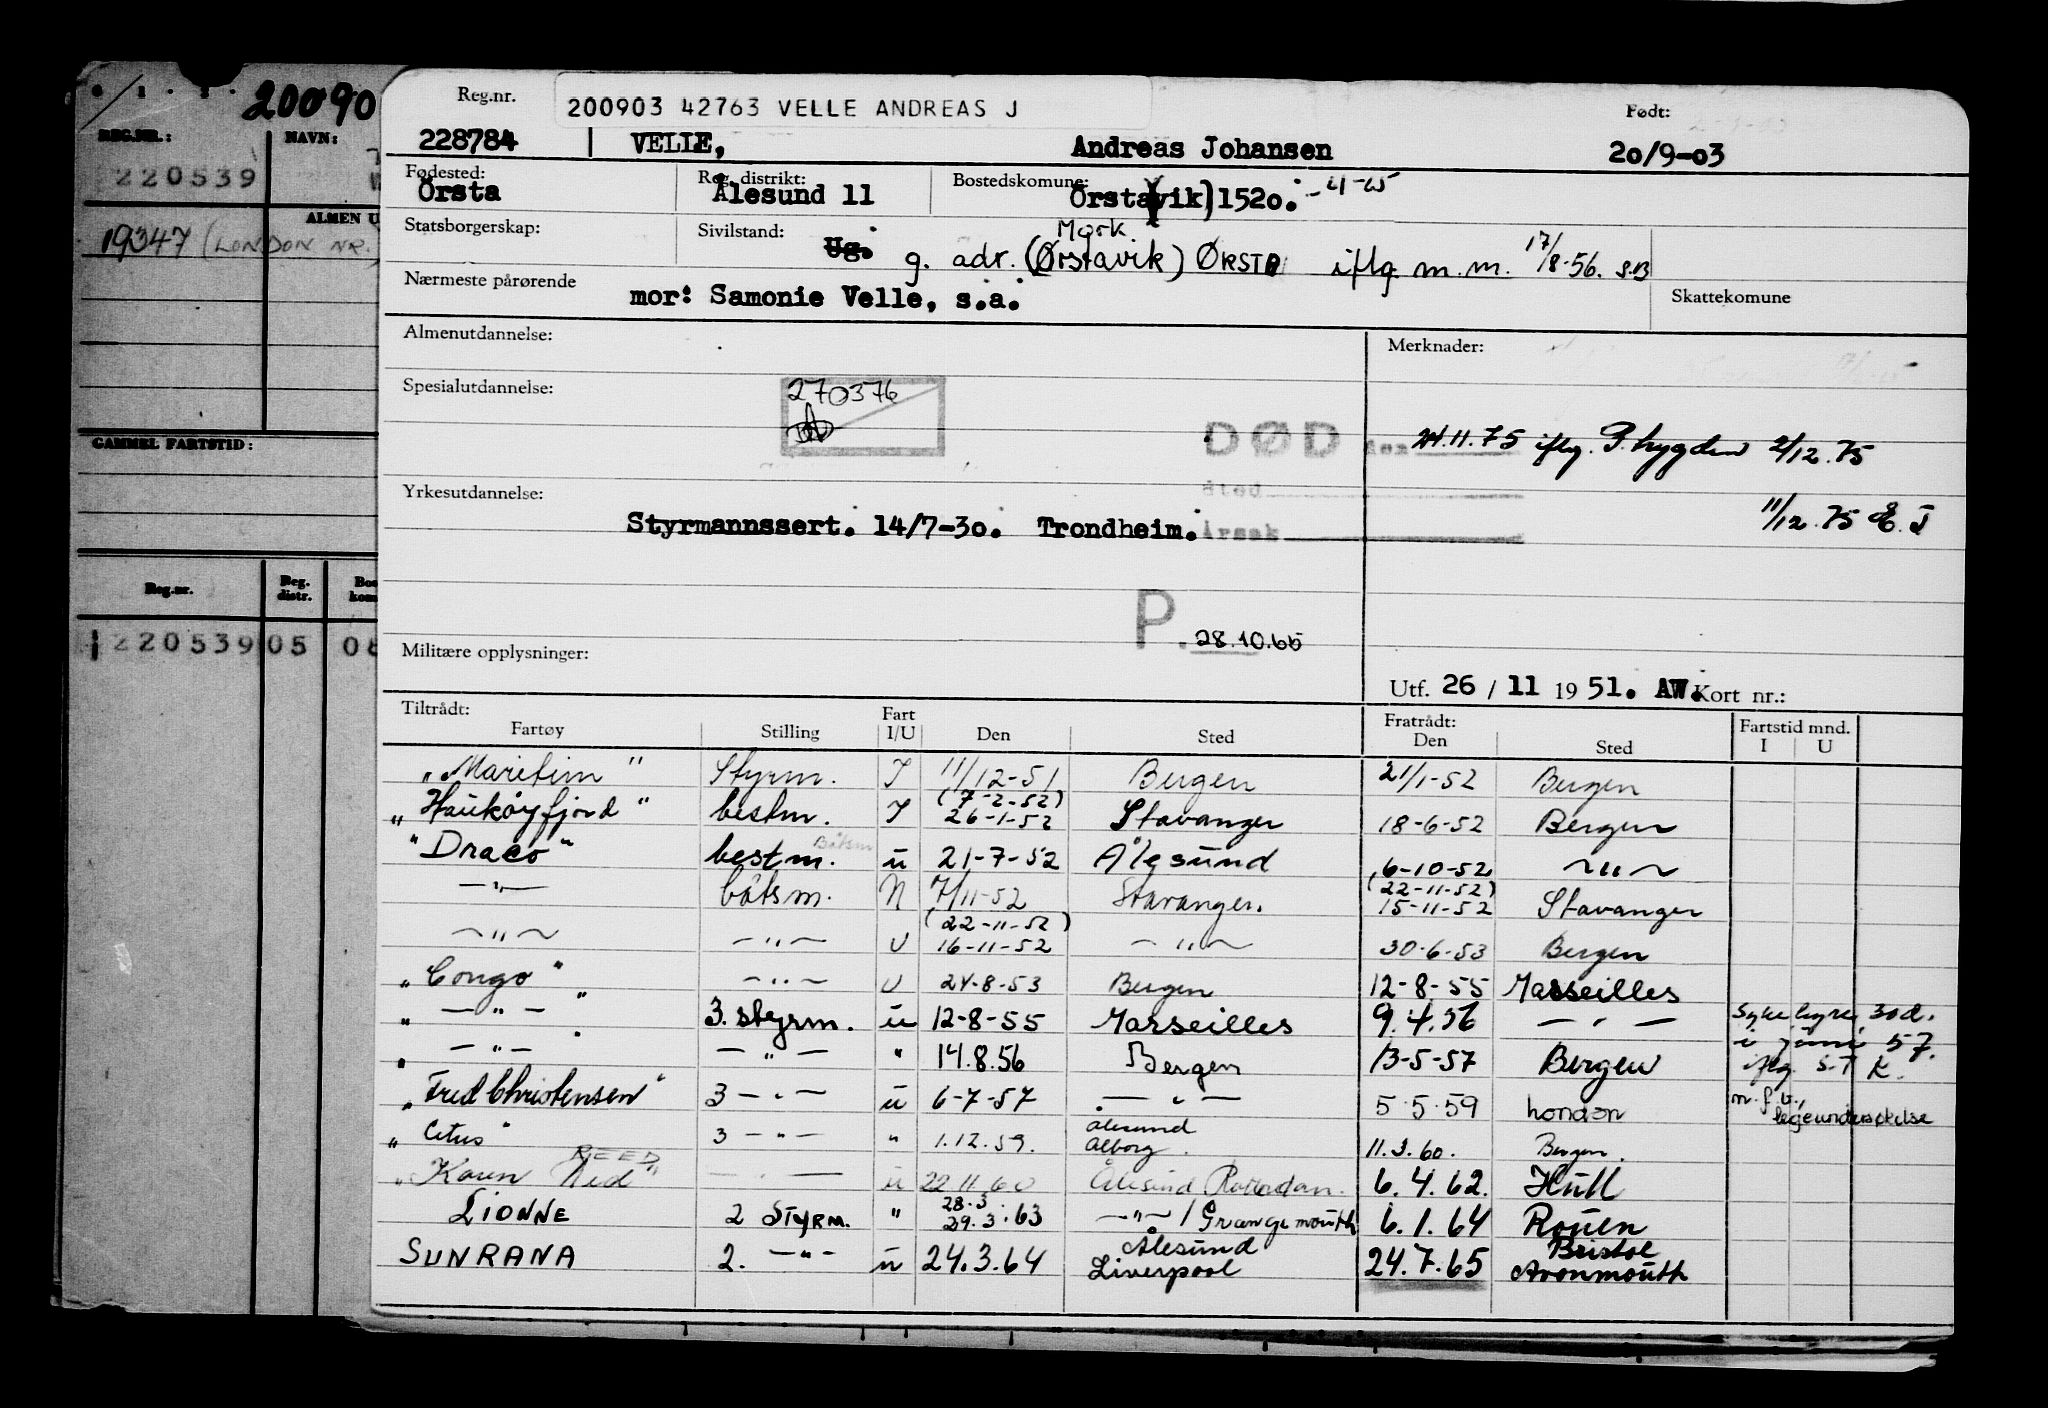 20090
REG.NR.: NAVN:
220539
ALMEN U
19347 (LONDON NR.
GAMMEL FARTSTID:
Reg.nr. Reg. distr. Bos kom
220539 05 08
Reg.nr. 200903 42763 VELLE ANDREAS J Født:
228784 VELLE, Andreas Johansen 20/9-03
Fødested: Reg. distrikt: Bostedskomune:
Örsta Ålesund 11 Örstavik) 1520.
Statsborgerskap: Sivilstand: Ug. Mork
g. adr. (Ørstavik) ØRSTA iflg. m.m. 17/8-56.
Nærmeste pårørende Skattekomune
mor: Samonie Velle, s.a.
Almenutdannelse: Merknader:
Spesialutdannelse: 270376
DØD den 24.11.75 iflg. 2/12.75
Sted
Yrkesutdannelse: 11/12.75 E.J
Styrmannssert. 14/7-30. Trondheim. Årsak
P. 28.10.65
Militære opplysninger:
Utf. 26/11 1951. AW. Kort nr.:
Tiltrådt: Fratrådt: Fartstid mnd.
Fartøy Stilling Fart I/U Den Sted Den Sted I U
"Maritim" Styrm. I 11/12-51 Bergen 21/1-52 Bergen
"Haukøyfjord" bestm. I (7-2-52) 26-1-52 Stavanger 18-6-52 Bergen
"Draco" bestm. Båtsm u 21-7-52 Ålesund 6-10-52 -"-
-"- båtsm. N 7/11-52 Stavanger. (22-11-52) 15-11-52 Stavanger
-"- -"- U (22-11-52) 16-11-52 -"- 30-6-53 Bergen
"Congo" -"- U 24-8-53 Bergen 12-8-55 Marseilles
" -"- " 3. styrm. u 12-8-55 Marseilles 9.4.56 -"- Sykehyre, 30d.
" -"- " -"- " 14.8.56 Bergen 13-5-57 Bergen i juni 57. iflg. S.T K.
"Fred Christensen" 3 -"- u 6-7-57 -"- 5.5.59 London m.f.v., legeundersøkelse
"Cetus" 3 -"- " 1.12.59. Ålesund Ålborg. 11.3.60. Bergen.
"Karen Reed" REED -"- u 22 11 60 Ålesund Rotterdam. 6.4.62. Hull
LIONNE 2 STYRM. " 28.3 29.3.63 -"- / Grangemouth 6.1.64 Rouen
SUNRANA 2. -"- u 24.3.64 Ålesund Liverpool 24.7.65 Bristol Avonmouth